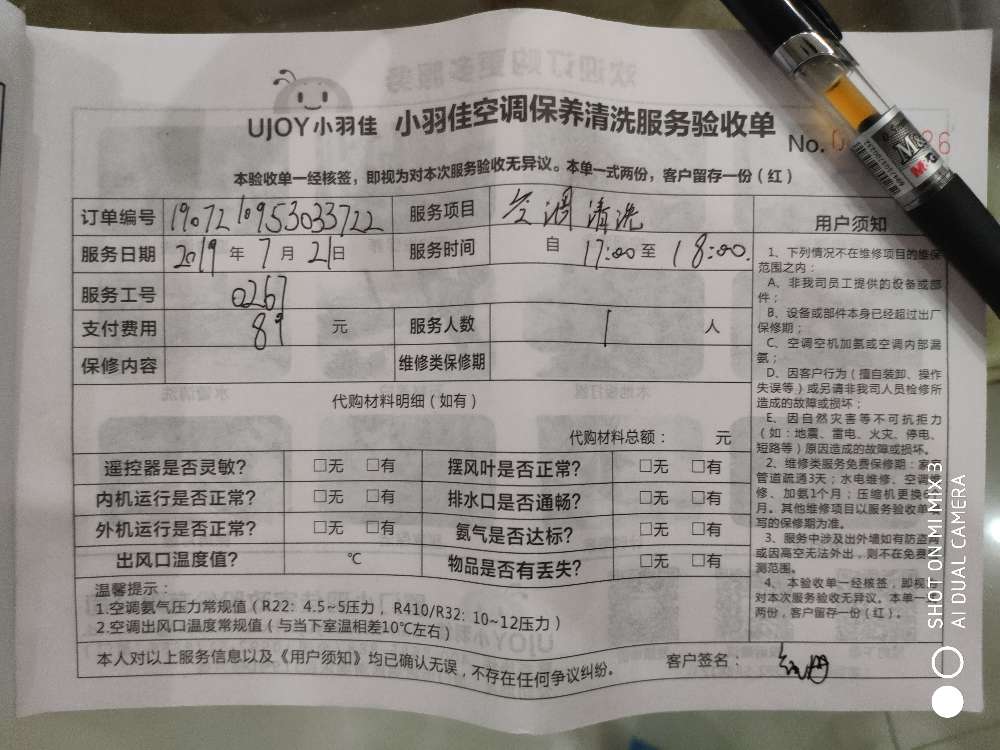 UJOY小羽佳 小羽佳空调保养清洗服务验收单
No. 26
本验收单一经核签，即视为对本次服务验收无异议。本单一式两份，客户留存一份（红）
订单编号 1907210953033722 服务项目 空调清洗
服务日期 2019年7月21日 服务时间 自17:00至18:00.
服务工号 0267
支付费用 89 元 服务人数 1 人
保修内容 维修类保修期
代购材料明细（如有）
代购材料总额： 元
遥控器是否灵敏? □无 □有 摆风叶是否正常? □无 □有
内机运行是否正常? □无 □有 排水口是否通畅? □无 □有
外机运行是否正常? □无 □有 氨气是否达标? □无 □有
出风口温度值? ℃ 物品是否有丢失? □无 □有
温馨提示：
1.空调氨气压力常规值（R22: 4.5~5压力，R410/R32: 10~12压力）
2.空调出风口温度常规值（与当下室温相差10℃左右）
本人对以上服务信息以及《用户须知》均已确认无误，不存在任何争议纠纷。 客户签名：
用户须知
1、下列情况不在维修项目的维保
范围之内：
A、非我司员工提供的设备或部
件；
B、设备或部件本身已经超过出厂
保修期；
C、空调空机加氨或空调内部漏
氨；
D、因客户行为（擅自装卸、操作
失误等）或另请非我司人员检修所
造成的故障或损坏；
E、因自然灾害等不可抗拒力
（如：地震、雷电、火灾、停电、
短路等）原因造成的故障或损坏。
2、维修类服务免费保修期：家
管道疏通3天；水电维修、空调
修、加氨1个月；压缩机更换
月。其他维修项目以服务验收单
写的保修期为准。
3、服务中涉及出外墙如有防盗
或因高空无法外出，则不在免费
测范围。
4、本验收单一经核签，即视
对本次服务验收无异议。本单一
两份，客户留存一份（红）。
M&G
SHOT ON MI MIX 3
AI DUAL CAMERA